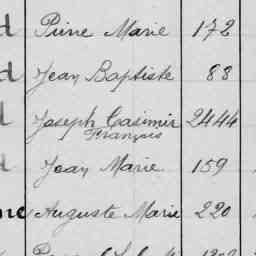 d Pierre Marie 172
d Jean Baptiste 88
d Joseph Casimir 2444
François
d Jean Marie 159
ne Auguste Marie 220